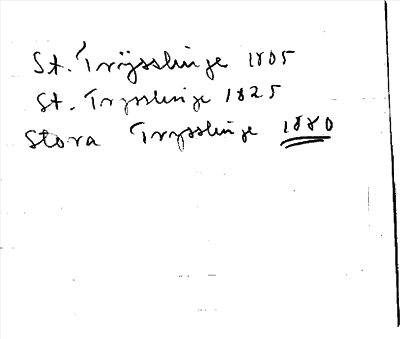 St. Trÿsslinge 1805
St. Trysslinge 1825
Stora Trysslinge 1880